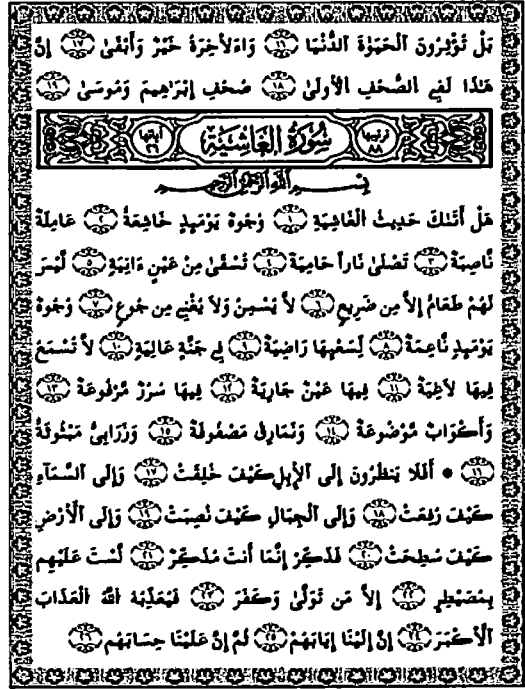 بَلْ تُؤْثِرُونَ اَلْحَيَوٰةَ اَلدُّنْيَا ١٦ وَاَءَلاْخِرَةُ خَيْرٌ وَأَبْقَىٰ ١٧ إِنَّ
هَـٰذَا لَفِي اِلصُّحُفِ اِلْأُولَىٰ ١٨ صُحُفِ إِبْرَٰهِيمَ وَمُوسَىٰ ١٩
ترتيبها ٨٨ سُورَةُ الْغَاشِيَةِ آياتها ٢٦
بِسْمِ اللَّهِ الرَّحْمَٰنِ الرَّحِيمِ
هَلْ أَتَىٰكَ حَدِيثُ اُلْغَاشِيَةِ ١ وُجُوهٌ يَوْمَئِذٍ خَاشِعَةٌ ٢ عَامِلَةٌ
نَّاصِبَةٌ ٣ تَصْلَىٰ نَاراً حَامِيَةً ٤ تُسْقَىٰ مِنْ عَيْنٍ ءَانِيَةٍ ٥ لَّيْسَ
لَهُمْ طَعَامٌ إِلاَّ مِن ضَرِيعٍ ٦ لاَّ يُسْمِنُ وَلاَ يُغْنِي مِن جُوعٍ ٧ وُجُوهٌ
يَوْمَئِذٍ نَّاعِمَةٌ ٨ لِّسَعْيِهَا رَاضِيَةٌ ٩ فِي جَنَّةٍ عَالِيَةٍ ١٠ لاَّ تُسْمَعُ
فِيهَا لَاغِيَةٌ ١١ فِيهَا عَيْنٌ جَارِيَةٌ ١٢ فِيهَا سُرُرٌ مَّرْفُوعَةٌ ١٣
وَأَكْوَابٌ مَّوْضُوعَةٌ ١٤ وَنَمَارِقُ مَصْفُوفَةٌ ١٥ وَزَرَابِيُّ مَبْثُوثَةٌ
١٦ * أَفَلَا يَنظُرُونَ إِلَى اَلْإِبِلِ كَيْفَ خُلِقَتْ ١٧ وَإِلَى اَلسَّمَآءِ
كَيْفَ رُفِعَتْ ١٨ وَإِلَى اَلْجِبَالِ كَيْفَ نُصِبَتْ ١٩ وَإِلَى اَلْأَرْضِ
كَيْفَ سُطِحَتْ ٢٠ فَذَكِّرْ إِنَّمَا أَنتَ مُذَكِّرٌ ٢١ لَّسْتَ عَلَيْهِم
بِمُصَيْطِرٍ ٢٢ إِلاَّ مَن تَوَلَّىٰ وَكَفَرَ ٢٣ فَيُعَذِّبُهُ اُللَّهُ اُلْعَذَابَ
اَلْأَكْبَرَ ٢٤ إِنَّ إِلَيْنَا إِيَابَهُمْ ٢٥ ثُمَّ إِنَّ عَلَيْنَا حِسَابَهُم ٢٦